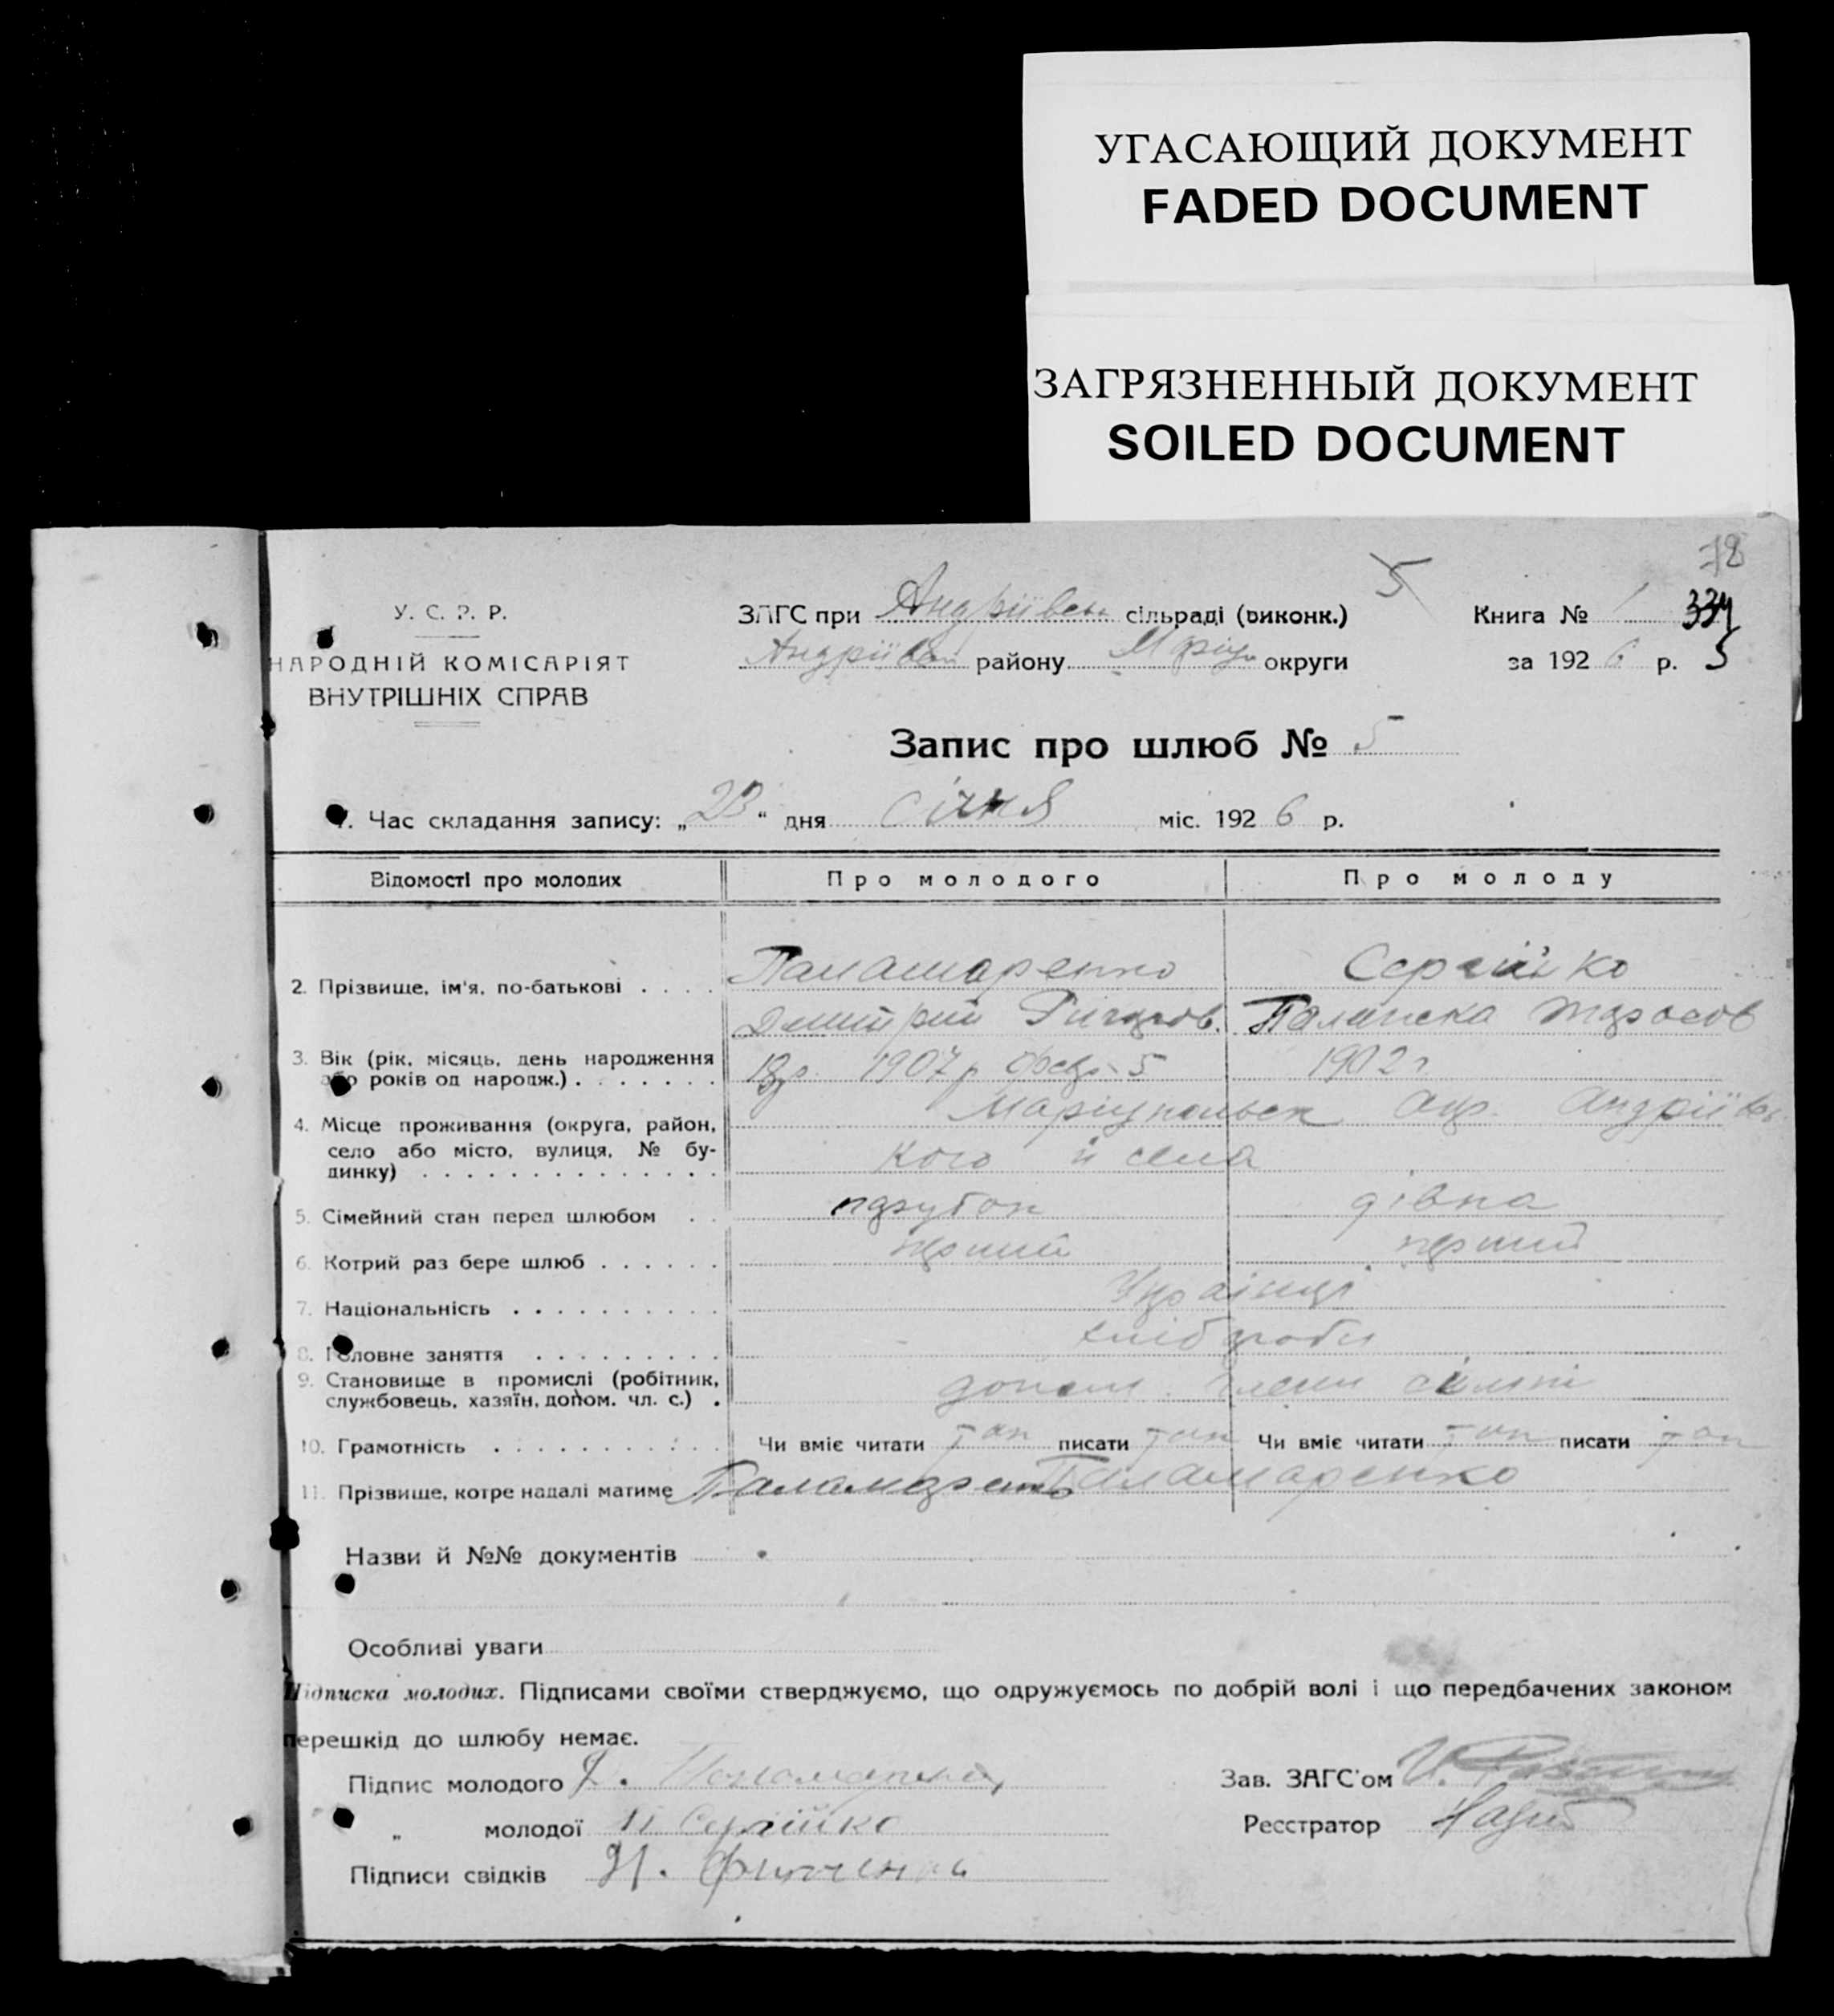 УГАСАЮЩИЙ ДОКУМЕНТ
FADED DOCUMENT
ЗАГРЯЗНЕННЫЙ ДОКУМЕНТ
SOILED DOCUMENT
78
5
У. С. Р. Р.
НАРОДНІЙ КОМІСАРІЯТ
ВНУТРІШНІХ СПРАВ
ЗАГС при Андріївськ сільраді (виконк.)
Книга № 1 334
Андріївськ району Маріуп округи
за 192 6 р. 5
Запис про шлюб № 5
1. Час складання запису: „ 23 “ дня січня міс. 192 6 р.
Відомості про молодих Про молодого Про молоду
2. Прізвище, ім'я, по-батькові . . . . Паламаренко Сергійко
Дмитрий Пелагея Тарасов
3. Вік (рік, місяць, день народження
або років од народж.) . . . . . . . 1907 р. 5 1902 г
4. Місце проживання (округа, район,
село або місто, вулиця, № бу-
динку) . . . . . . . . . . . . . . Маріупольск окр. Андріївсь
кого й села
5. Сімейний стан перед шлюбом . . парубок дівка
6. Котрий раз бере шлюб . . . . . . перший перший
7. Національність . . . . . . . . . . Українці
8. Головне заняття . . . . . . . . . хлібороби
9. Становище в промислі (робітник,
службовець, хазяїн, допом. чл. с.) . допом. члени сімьї
10. Грамотність . . . . . . . . . . . Чи вміє читати так писати так Чи вміє читати так писати так
11. Прізвище, котре надалі матиме Паламаренко Паламаренко
Назви й №№ документів
Особливі уваги
Підписка молодих. Підписами своїми стверджуємо, що одружуємось по добрій волі і що передбачених законом
перешкід до шлюбу немає.
Підпис молодого Д.
Зав. ЗАГС'ом И.
„ молодої П Сергійко
Реєстратор
Підписи свідків И.